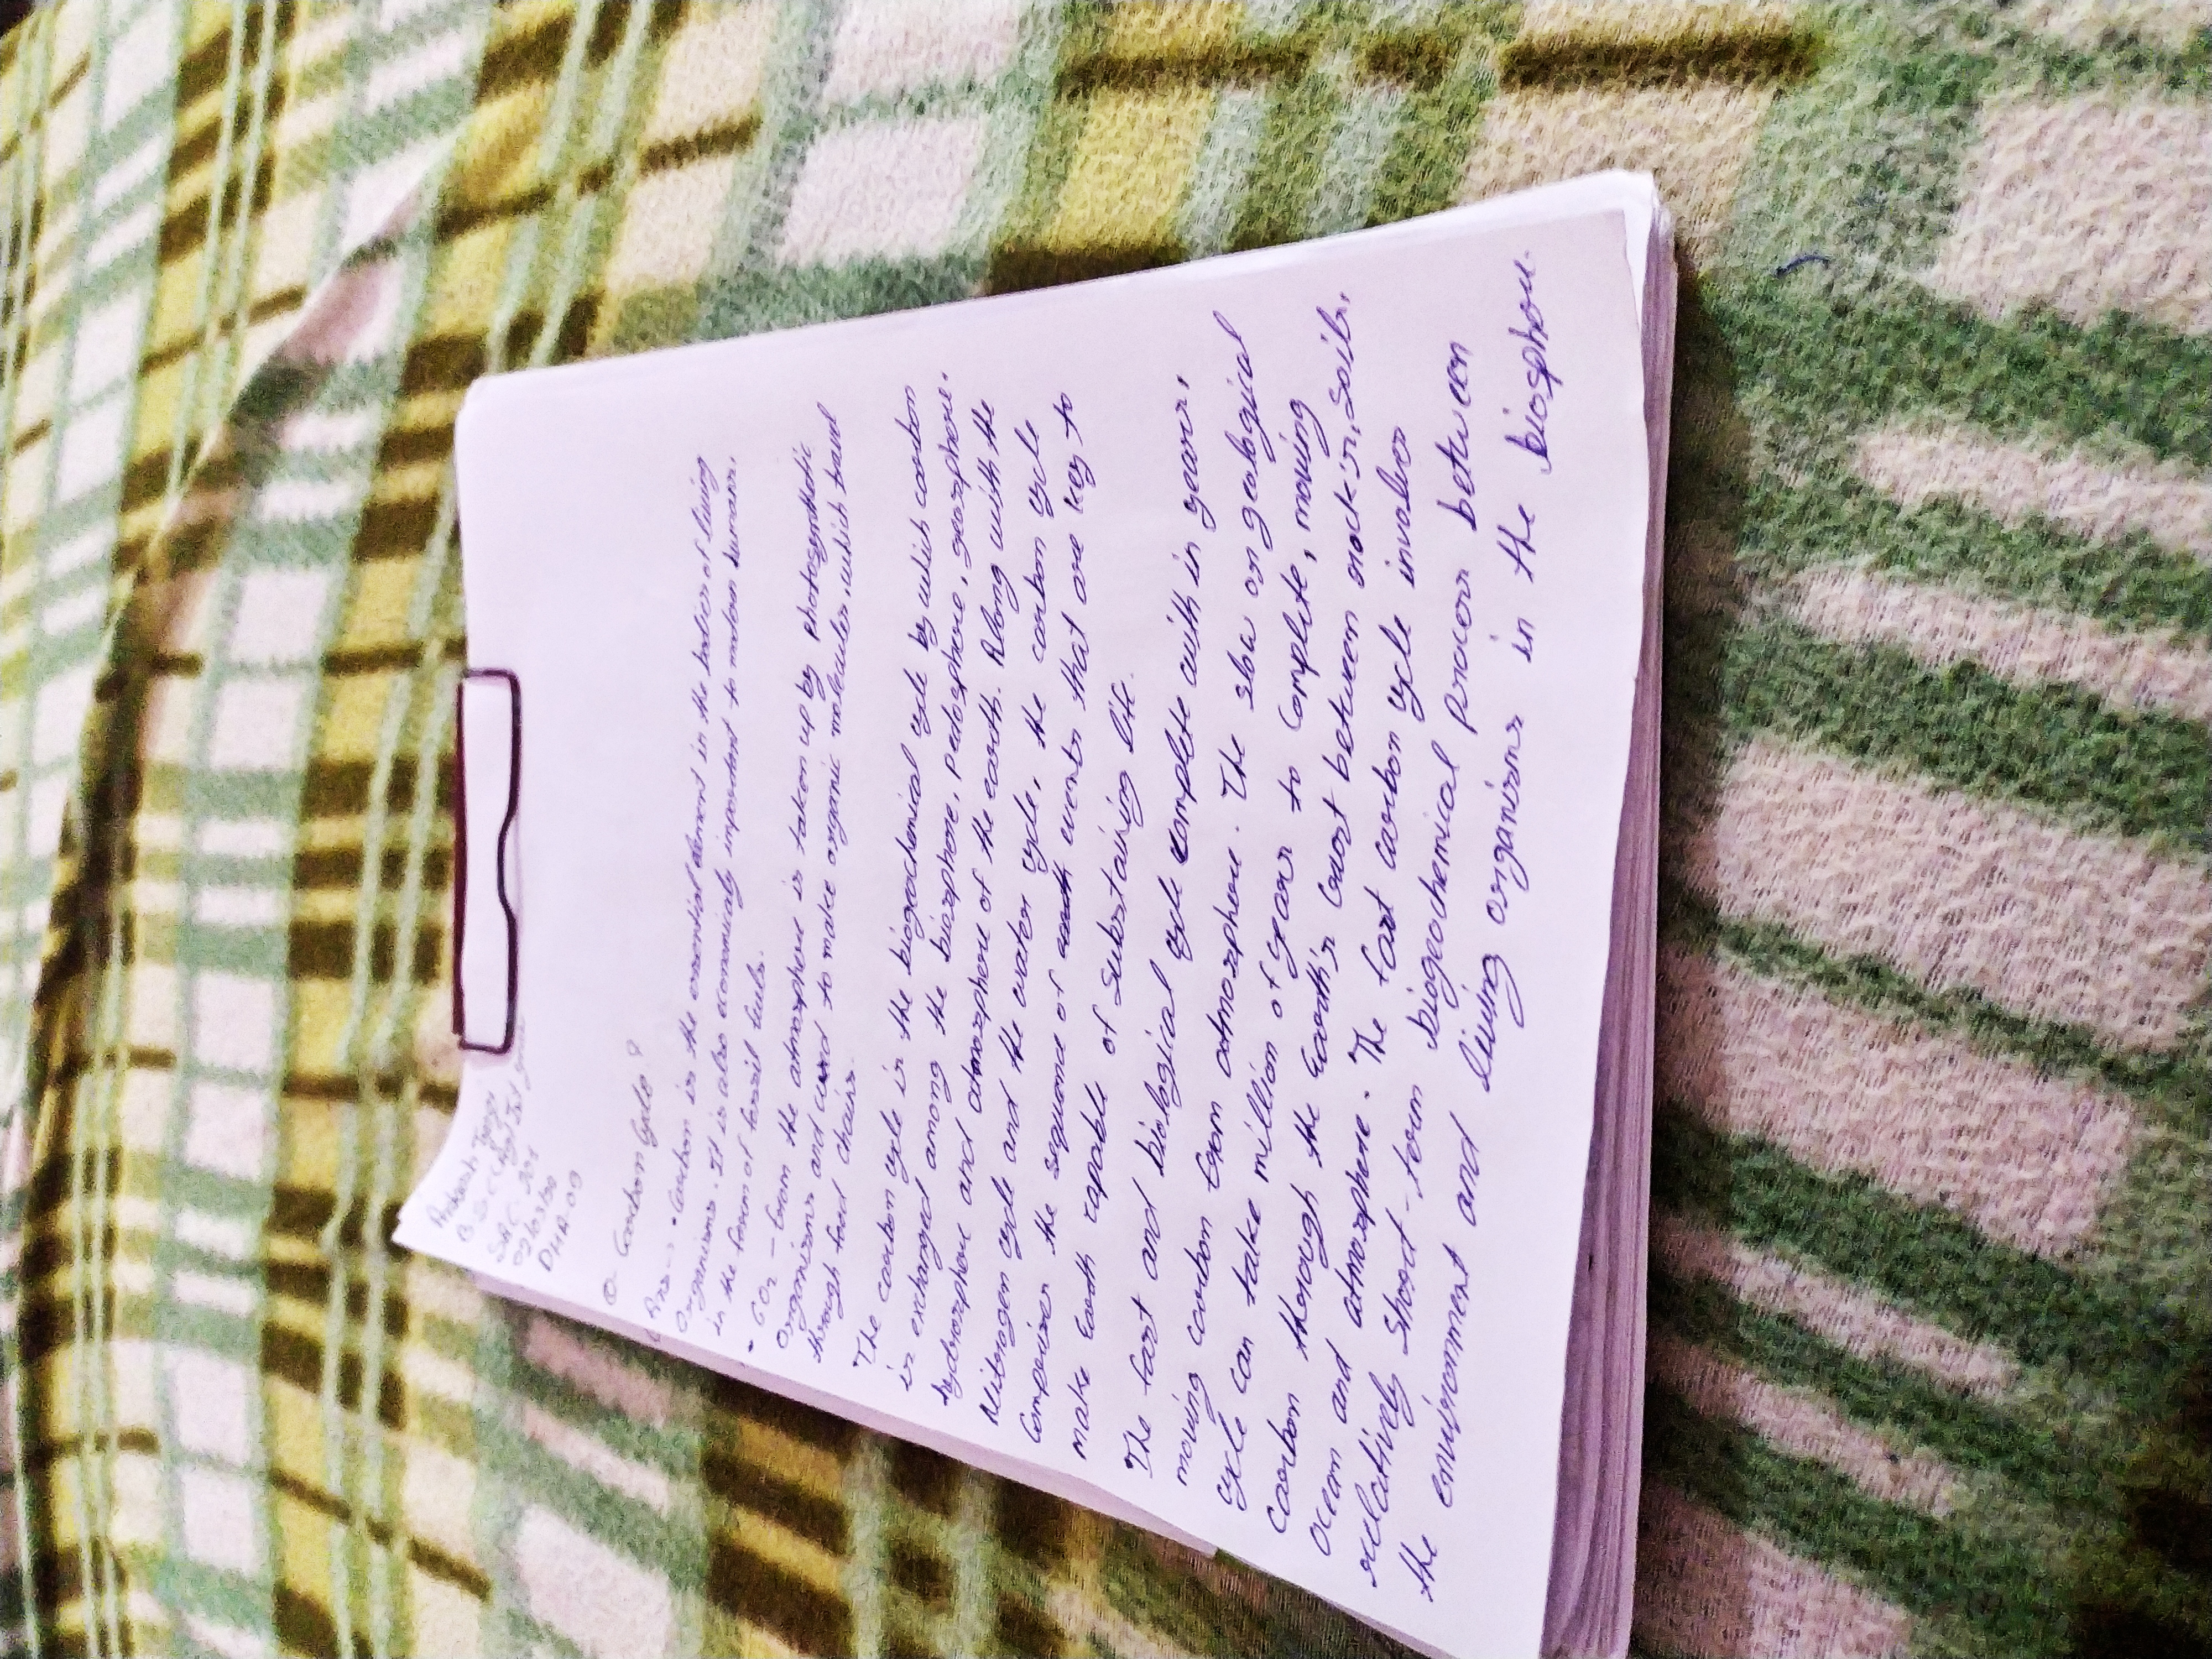 Prakash Tyagi
B.SC (Ag) Ist year
SAC 201
02/03/20
DMA-09
Q- Carbon Cycle?
Ans-: • Carbon is the essential element in the bodies of living
organisms. It is also economically important to modern humans,
in the form of fossil fuels.
• CO2 - from the atmosphere is taken up by photosynthetic
organisms and used to make organic molecules, which travel
through food chains.
• The carbon cycle is the biogeochemical cycle by which carbon
is exchanged among the biosphere, pedosphere, geosphere,
hydrosphere and atmosphere of the earth. Along with the
Nitrogen cycle and the water cycle, the carbon cycle
Comprises the sequence of events that are key to
make Earth capable of substaining life.
• The fast and biological cycle complete with in years,
moving carbon from atmosphere. The slow or geological
cycle can take million of years to complete, moving
Carbon through the Earth's crust between rocks, soils,
Ocean and atmosphere. • The fast carbon cycle involves
relatively short-term biogeochemical process between
the environment and living organisms in the biosphere.